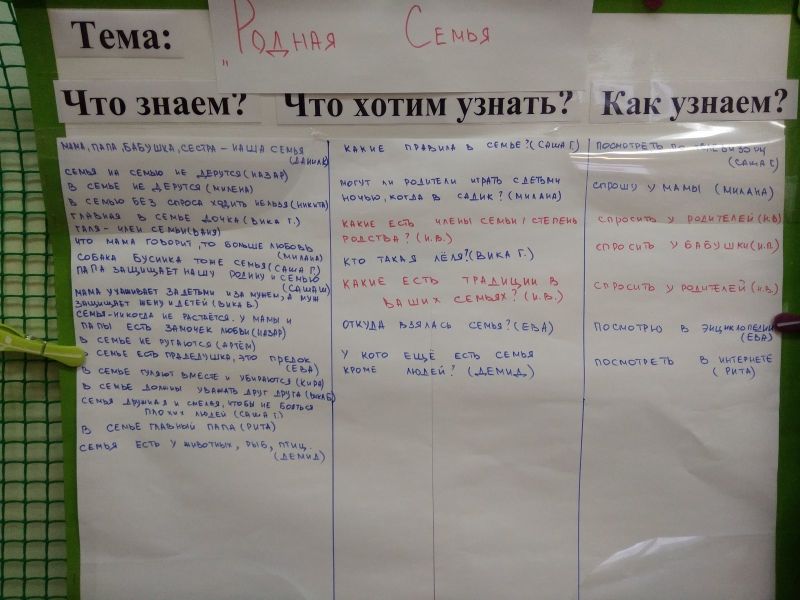 Тема:
„Родная Семья
Что знаем?
МАМА, ПАПА, БАБУШКА, СЕСТРА – НАША СЕМЬЯ
(ДАНИЛА)
СЕМЬЯ НА СЕМЬЮ НЕ ДЕРУТСЯ (НАЗАР)
В СЕМЬЕ НЕ ДЕРУТСЯ (МИЛЕНА)
В СЕМЬЮ БЕЗ СПРОСА ХОДИТЬ НЕЛЬЗЯ (НИКИТА)
ГЛАВНАЯ В СЕМЬЕ ДОЧКА (ВИКА Г.)
ГАЛЯ – ЧЛЕН СЕМЬИ (ВАНЯ)
ЧТО МАМА ГОВОРИТ, ТО БОЛЬШЕ ЛЮБОВЬ
(МИЛАНА)
СОБАКА БУСИНКА ТОЖЕ СЕМЬЯ (САША Г.)
ПАПА ЗАЩИЩАЕТ НАШУ РОДИНУ И СЕМЬЮ
(САША Ш)
МАМА УХАЖИВАЕТ ЗА ДЕТЬМИ И ЗА МУЖЕМ, А МУЖ
ЗАЩИЩАЕТ ЖЕНУ И ДЕТЕЙ (ВИКА Б.)
СЕМЬЯ – НИКОГДА НЕ РАСТАЁТСЯ. У МАМЫ И
ПАПЫ ЕСТЬ ЗАМОЧЕК ЛЮБВИ (НАЗАР)
В СЕМЬЕ НЕ РУГАЮТСЯ (АРТЁМ)
В СЕМЬЕ ЕСТЬ ПРАДЕДУШКА, ЭТО ПРЕДОК
(ЕВА)
В СЕМЬЕ ГУЛЯЮТ ВМЕСТЕ И УБИРАЮТСЯ (КИРА)
В СЕМЬЕ ДОЛЖНЫ УВАЖАТЬ ДРУГ ДРУГА (ВИКА Б)
СЕМЬЯ ДРУЖНАЯ И СМЕЛАЯ, ЧТОБЫ НЕ БОЯТЬСЯ
ПЛОХИХ ЛЮДЕЙ (САША Г.)
В СЕМЬЕ ГЛАВНЫЙ ПАПА (РИТА)
СЕМЬЯ ЕСТЬ У ЖИВОТНЫХ, РЫБ, ПТИЦ.
(ДЕМИД)
Что хотим узнать?
КАКИЕ ПРАВИЛА В СЕМЬЕ? (САША Г)
МОГУТ ЛИ РОДИТЕЛИ ИГРАТЬ С ДЕТЬМИ
НОЧЬЮ, КОГДА В САДИК? (МИЛАНА)
КАКИЕ ЕСТЬ ЧЛЕНЫ СЕМЬИ / СТЕПЕНЬ
РОДСТВА? (И.В.)
КТО ТАКАЯ ЛЁЛЯ? (ВИКА Г.)
КАКИЕ ЕСТЬ ТРАДИЦИИ В
ВАШИХ СЕМЬЯХ? (И.В.)
ОТКУДА ВЗЯЛАСЬ СЕМЬЯ? (ЕВА)
У КОГО ЕЩЁ ЕСТЬ СЕМЬЯ
КРОМЕ ЛЮДЕЙ? (ДЕМИД)
Как узнаем?
ПОСМОТРЕТЬ ПО ТЕЛЕВИЗОРУ
(САША Г)
СПРОШУ У МАМЫ (МИЛАНА)
СПРОСИТЬ У РОДИТЕЛЕЙ (И.В)
СПРОСИТЬ У БАБУШКИ
СПРОСИТЬ У РОДИТЕЛЕЙ (И.В.)
ПОСМОТРЮ В ЭНЦИКЛОПЕДИИ
(ЕВА)
ПОСМОТРЕТЬ В ИНТЕРНЕТЕ
(РИТА)